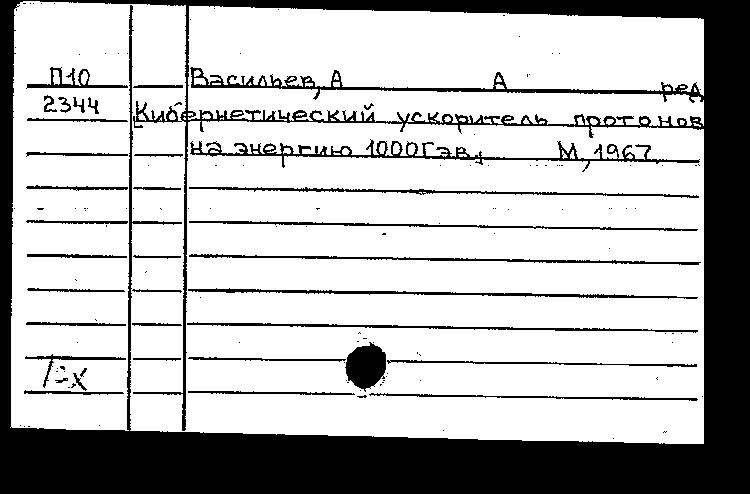 П10 Васильев, А А ред
2344 Кибернетический ускоритель протонов
на энергию 1000Гэв., М, 1967.